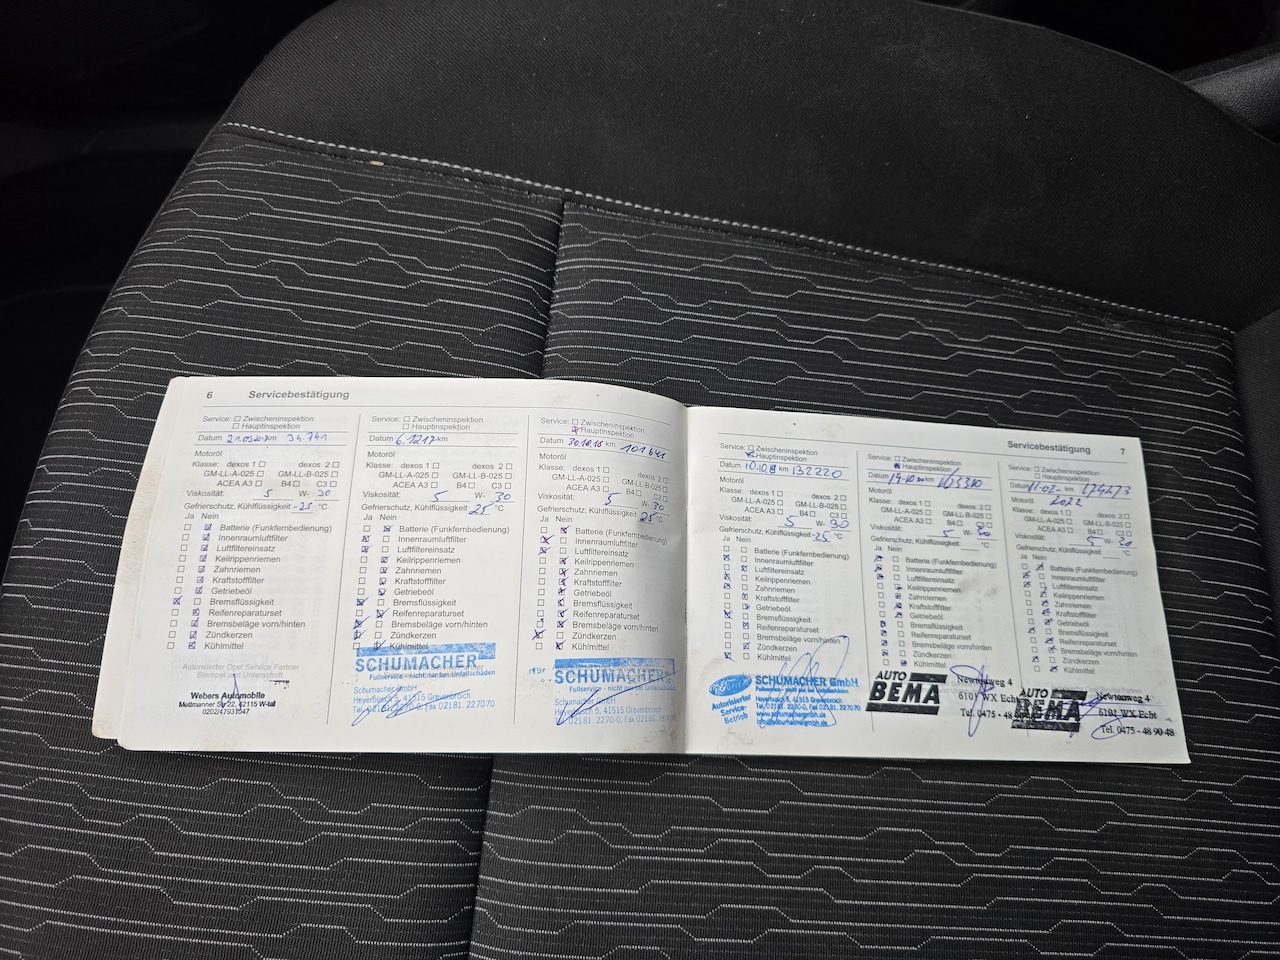 6 Servicebestätigung
Service: Zwischeninspektion
Hauptinspektion
Datum km 34.741
Motoröl
Klasse: dexos 1 dexos 2
GM-LL-A-025 GM-LL-B-025
ACEA A3 B4 C3
Viskosität: 5 W- 30
Gefrierschutz, Kühlflüssigkeit -25 °C
Ja Nein
Batterie (Funkfernbedienung)
Innenraumluftfilter
Luftfiltereinsatz
Keilrippenriemen
Zahnriemen
Kraftstofffilter
Getriebeöl
Bremsflüssigkeit
Reifenreparaturset
Bremsbeläge vorn/hinten
Zündkerzen
Kühlmittel
Autorisierter Opel Service Partner
Stempel und Unterschrift
Webers Automobile
Mettmanner Str 22, 42115 W-tal
0202/47931047
Service: Zwischeninspektion
Hauptinspektion
Datum 6.1217 km
Motoröl
Klasse: dexos 1 dexos 2
GM-LL-A-025 GM-LL-B-025
ACEA A3 B4 C3
Viskosität: 5 W- 30
Gefrierschutz, Kühlflüssigkeit 25 °C
Ja Nein
Batterie (Funkfernbedienung)
Innenraumluftfilter
Luftfiltereinsatz
Keilrippenriemen
Zahnriemen
Kraftstofffilter
Getriebeöl
Bremsflüssigkeit
Reifenreparaturset
Bremsbeläge vorn/hinten
Zündkerzen
Kühlmittel
SCHUMACHER
Fullservice - nicht nur bei Unfallschäden
Schumacher GmbH
Heyerbusch 5, 41515 Grevenbroich
Tel. 02181. 2270-0, Fax 02181. 227070
Service: Zwischeninspektion
Hauptinspektion
Datum km
Motoröl
Klasse: dexos 1 dexos 2
GM-LL-A-025 GM-LL-B-025
ACEA A3 B4 C3
Viskosität: 5 W- 30
Gefrierschutz, Kühlflüssigkeit 25 °C
Ja Nein
Batterie (Funkfernbedienung)
Innenraumluftfilter
Luftfiltereinsatz
Keilrippenriemen
Zahnriemen
Kraftstofffilter
Getriebeöl
Bremsflüssigkeit
Reifenreparaturset
Bremsbeläge vorn/hinten
Zündkerzen
Kühlmittel
SCHUMACHER
Fullservice - nicht nur bei Unfallschäden
Schumacher GmbH
Heyerbusch 5, 41515 Grevenbroich
02181. 2270-0, Fax 02181.
Servicebestätigung 7
Service: Zwischeninspektion
Hauptinspektion
Datum km 132220
Motoröl
Klasse: dexos 1 dexos 2
GM-LL-A-025 GM-LL-B-025
ACEA A3 B4 C3
Viskosität: 5 W- 30
Gefrierschutz, Kühlflüssigkeit -25 °C
Ja Nein
Batterie (Funkfernbedienung)
Innenraumluftfilter
Luftfiltereinsatz
Keilrippenriemen
Zahnriemen
Kraftstofffilter
Getriebeöl
Bremsflüssigkeit
Reifenreparaturset
Bremsbeläge vorn/hinten
Zündkerzen
Kühlmittel
SCHUMACHER GmbH
Fullservice - nicht nur bei Unfallschäden
Autorisierter
Service-
Betrieb
Heyerbusch 5, 41515 Grevenbroich
Tel. 02181. 2270-0, Fax 02181. 227070
Service: Zwischeninspektion
Hauptinspektion
Datum km 163310
Motoröl
Klasse: dexos 1 dexos 2
GM-LL-A-025 GM-LL-B-025
ACEA A3 B4 C3
Viskosität: 5 W- 30
Gefrierschutz, Kühlflüssigkeit °C
Ja Nein
Batterie (Funkfernbedienung)
Innenraumluftfilter
Luftfiltereinsatz
Keilrippenriemen
Zahnriemen
Kraftstofffilter
Getriebeöl
Bremsflüssigkeit
Reifenreparaturset
Bremsbeläge vorn/hinten
Zündkerzen
Kühlmittel
AUTO
BEMA
Newtonweg 4
6101 WX Echt
Tel. 0475 - 48
Service: Zwischeninspektion
Hauptinspektion
Datum 11-02- km
Motoröl 2022
Klasse: dexos 1 dexos 2
GM-LL-A-025 GM-LL-B-025
ACEA A3 B4 C3
Viskosität: 5 W- 30
Gefrierschutz, Kühlflüssigkeit °C
Ja Nein
Batterie (Funkfernbedienung)
Innenraumluftfilter
Luftfiltereinsatz
Keilrippenriemen
Zahnriemen
Kraftstofffilter
Getriebeöl
Bremsflüssigkeit
Reifenreparaturset
Bremsbeläge vorn/hinten
Zündkerzen
Kühlmittel
AUTO
BEMA
Newtonweg 4
6102 WX Echt
Tel. 0475 - 48 90 48